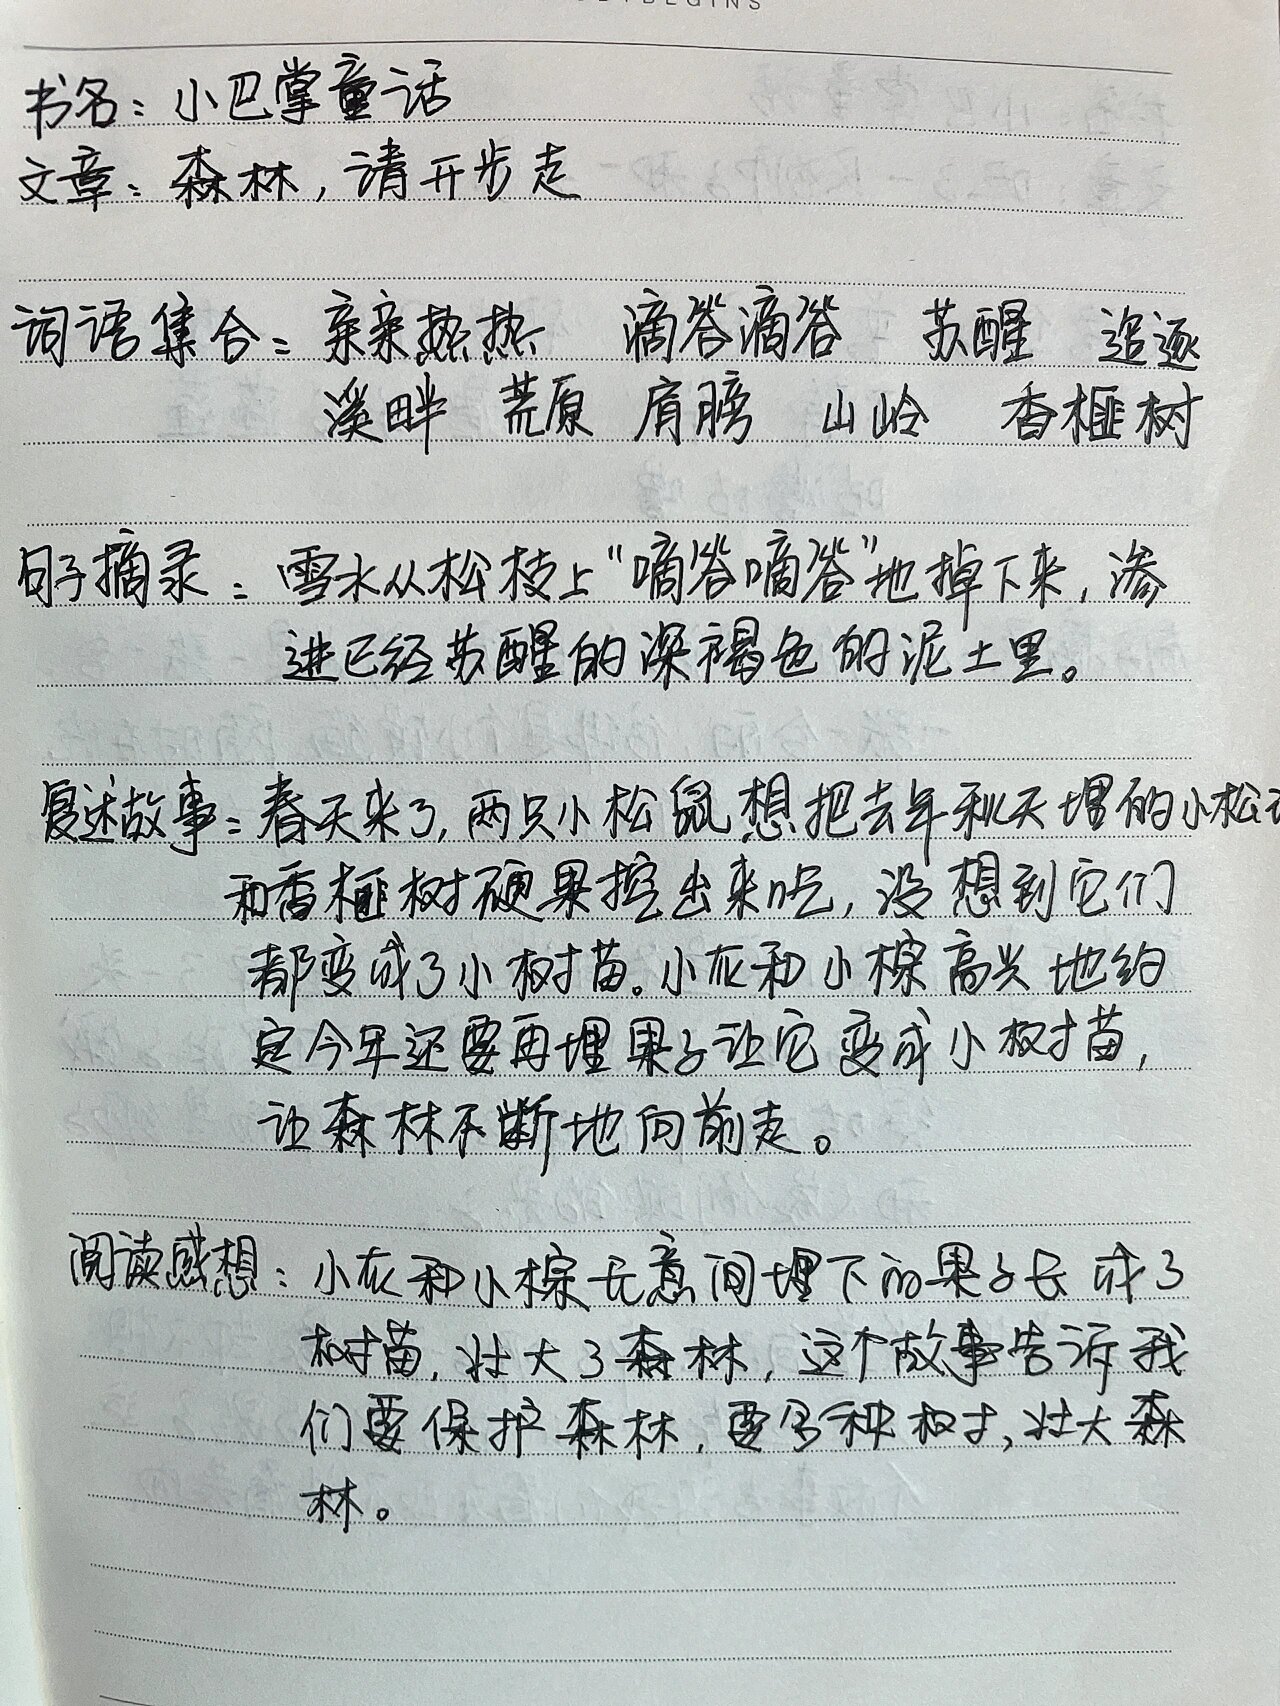 BEGINS
书名：小巴掌童话
文章：森林，请开步走
词语集合：亲亲热热 滴答滴答 苏醒 追逐
溪畔 荒原 肩膀 山岭 香榧树
句子摘录：雪水从松枝上“嘀答嘀答”地掉下来，渗
进已经苏醒的深褐色的泥土里。
复述故事：春天来了，两只小松鼠想把去年秋天埋的小松
和香榧树硬果挖出来吃，没想到它们
都变成了小树苗。小灰和小棕高兴地约
定今年还要再埋果子让它变成小树苗，
让森林不断地向前走。
阅读感想：小灰和小棕无意间埋下的果子长成了
树苗，壮大了森林，这个故事告诉我
们要保护森林，要多种树，壮大森
林。